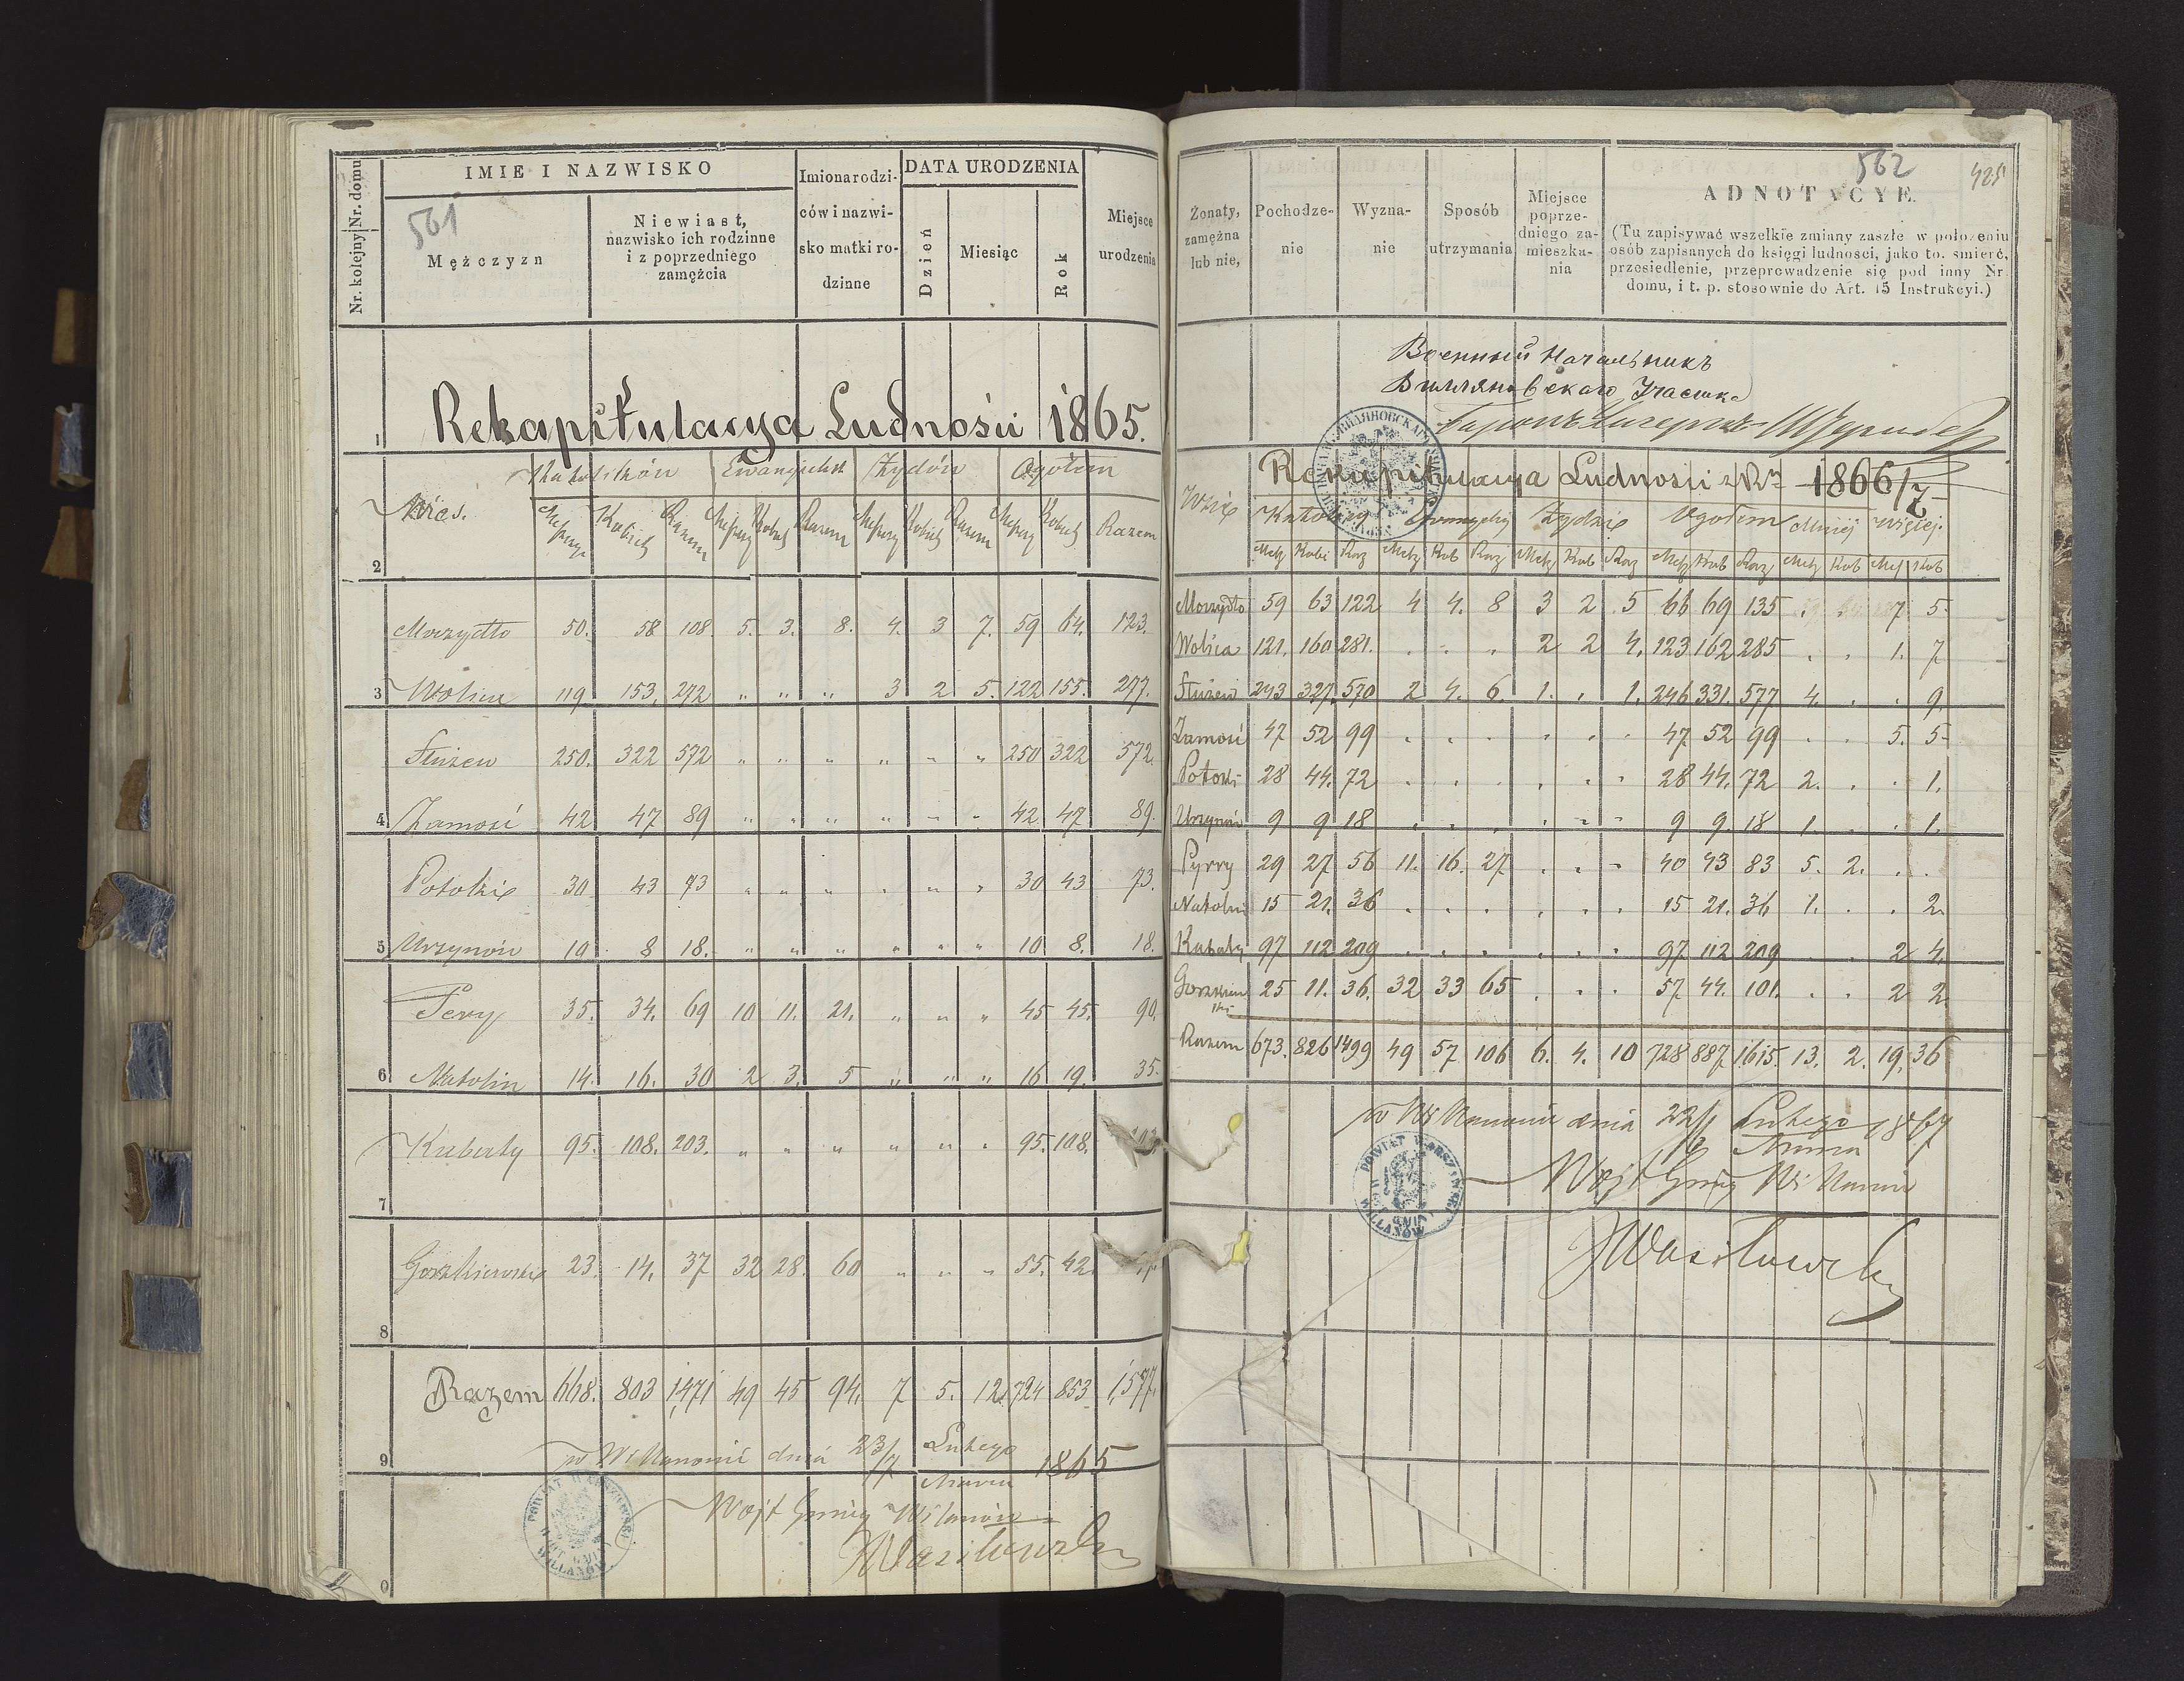 Nr. kolejny Nr. domu
IMIE I NAZWISKO
561
Mężczyzn
Niewiast,
nazwisko ich rodzinne
i z poprzedniego
zamężcia
Imiona rodzi-
ców i nazwi-
sko matki ro-
dzinne
DATA URODZENIA
Dzień
Miesiąc
Rok
Miejsce
urodzenia
1
Rekapitulacya Ludności 1865.
Wieś. Katolików Ewangielik Żydów Ogółem
2
Męszcz Kobiet Razem Męszcz Kobiet Razem Męszcz Kobiet Razem Męszcz Kobiet Razem
Moczydło 50. 58 108. 5. 3. 8. 4. 3 7. 59 64. 123.
3 Wolica 119. 153. 272 " " " 3 2 5. 122 155. 277.
Służew 250. 322 572 " " " " " " 250 322 572.
4 Zamość 42 47 89 " " " " " " 42 47 89.
Potoki 30 43 73 " " " " " " 30 43 73.
5 Ursynów 10 8 18. " " " " " " 10 8. 18.
Pery 35. 34. 69 10 11. 21. " " " 45 45. 90.
6 Natolin 14. 16. 30 2 3. 5 " " " 16 19. 35.
Kabaty 95. 108. 203. " " " " " " 95. 108. 203.
7
Gorzkiewki 23. 14. 37 32 28. 60 " " " 55. 42.
8
Razem 668. 803 1,471 49 45 94. 7 5. 12. 724 853 1,577.
9
w Willanowie dnia 23/7 Lutego Marca 1865
Wójt Gminy Wilanów
JWasilewski
0
POWIAT WARSZAWSKI
WÓJT GMINY
WILLANÓW
562
425
Żonaty,
zamężna
lub nie,
Pochodze-
nie
Wyzna-
nie
Sposób
utrzymania
Miejsce
poprze-
dniego za-
mieszka-
nia
ADNOTACYE.
(Tu zapisywać wszelkie zmiany zaszłe w położeniu
osób zapisanych do księgi ludności, jako to. śmierć,
przesiedlenie, przeprowadzenie się pod inny Nr.
domu, i t. p. stosownie do Art. 15 Instrukcyi.)
Военный Начальникъ
Виляновскаго Участка
Rekapitulacya Ludności z R. 1866/7
Wsie Katolicy Ewangelicy Żydzie Ogółem Mniej więcej.
Męz Kobi Raz Męz Kob Raz Męz Kob Raz Męz Kob Raz Męz Kob Męz Kob
Moczydło 59 63 122 4 4. 8 3 2 5 66 69 135 . . 7 5.
Wolica 121. 160 281. . . . 2 2 4. 123 162 285 . . 1. 7
Służew 243 327. 570 2 4. 6. 1. . 1. 246 331. 577 4. . . 9.
Zamość 47 52 99 . . . . . . 47 52 99 . . 5. 5
Potoki 28 44. 72 . . . . . . 28 44. 72 2. . . 1.
Ursynów 9 9 18 . . . . . . 9 9. 18 1. . . 1.
Pyry 29 27 56 11. 16. 27 . . . 40 43 83 5. 2. . .
Natolin 15 21. 36 . . . . . . 15 21. 36 1. . . 2.
Kabaty 97 112 209 . . . . . . 97 112 209 . . 2 4.
Gorzkiewki 25 11. 36. 32 33 65 . . . 57. 44. 101. . . 2 2
Razem 673. 826 1499 49 57 106 6. 4. 10 728 887 1615. 13. 2. 19. 36
w Willanowie dnia 22/ Lutego 1867
Wójt Gminy Willanów
JWasilewski
POWIAT WARSZAWSKI
WÓJT GMINY
WILLANÓW